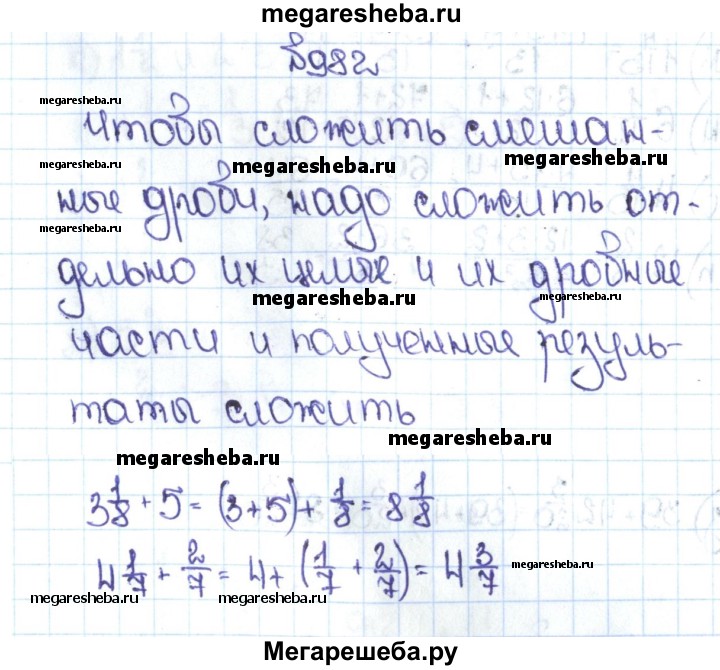 megaresheba.ru
№982
megaresheba.ru
Чтобы сложить смешан-
megaresheba.ru
megaresheba.ru
megaresheba.ru
ные дроби, надо сложить от-
megaresheba.ru
дельно их целые и их дробные
megaresheba.ru
megaresheba.ru
части и полученные резуль-
таты сложить
megaresheba.ru
megaresheba.ru
3 1/8 + 5 = (3+5) + 1/8 = 8 1/8
4 1/7 + 2/7 = 4 + (1/7 + 2/7) = 4 3/7
megaresheba.ru
megaresheba.ru
megaresheba.ru
Мегарешеба.ру